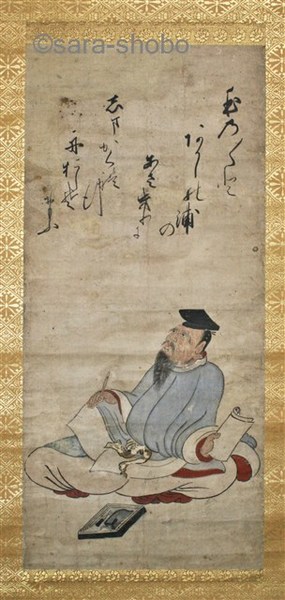 ©sara-shobo
ほの〱と
あかしの浦
の
あさ霧に
しまかくれ
行
舟をしそ
おもふ